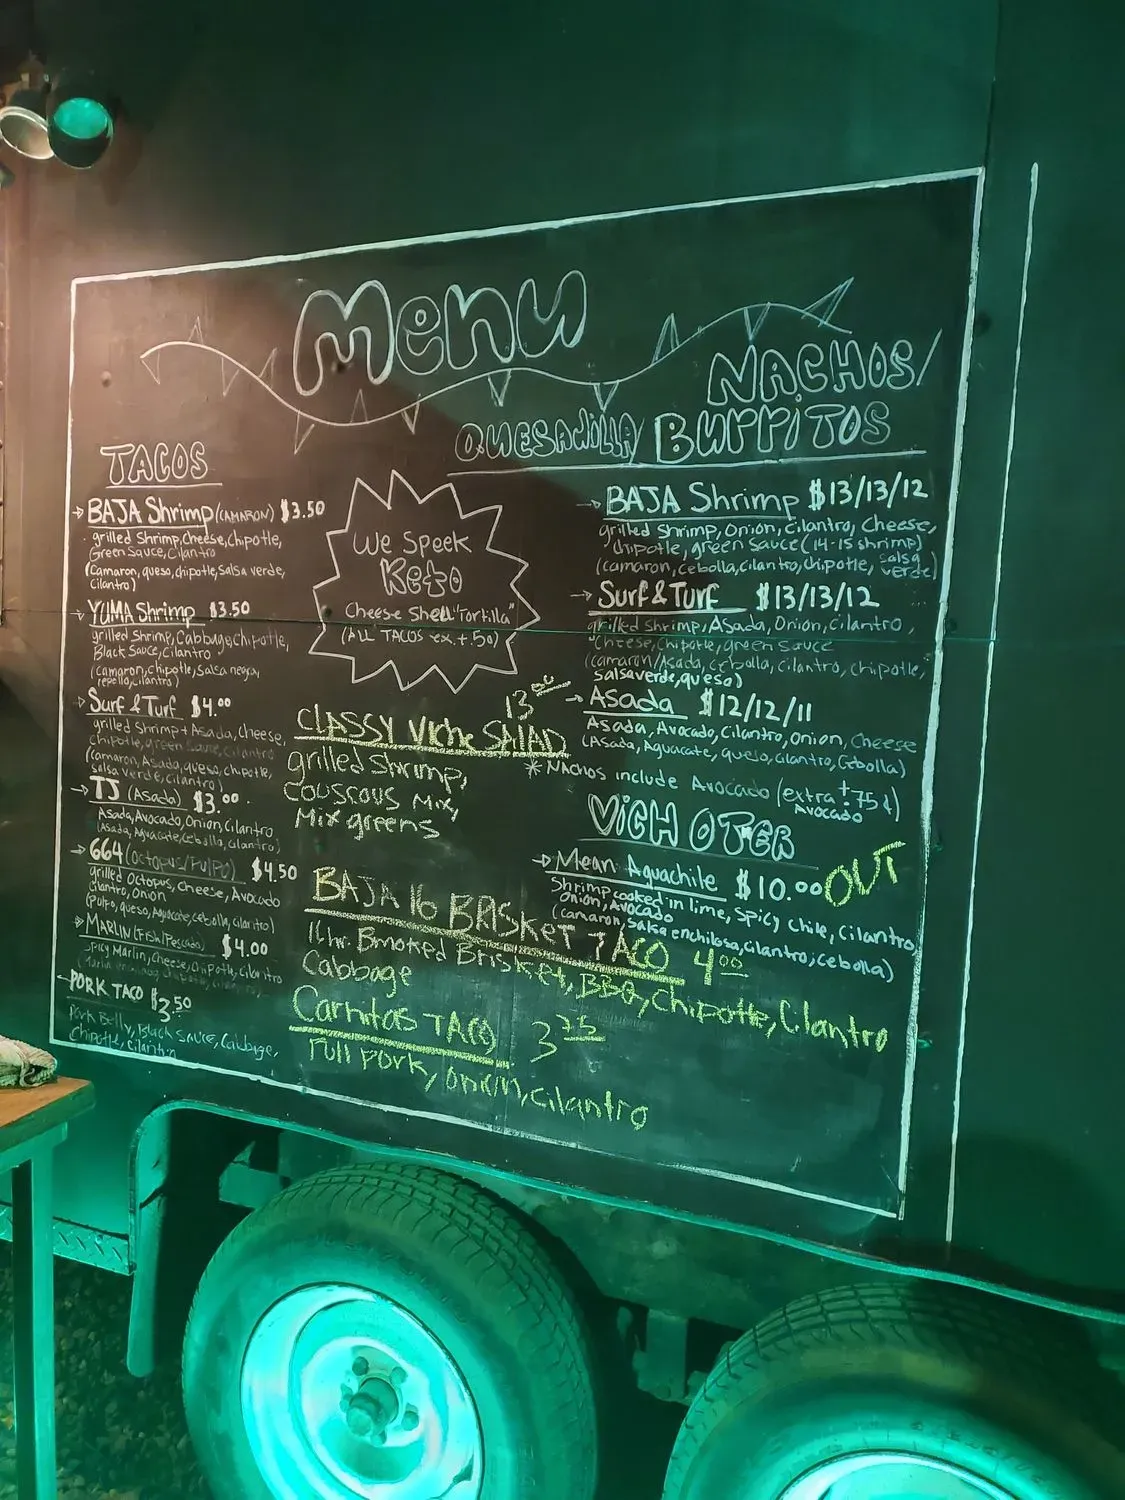 Menu
TACOS
BAJA Shrimp (CAMARON) $3.50
grilled Shrimp, Cheese, Chipotle,
Green Sauce, Cilantro
(camaron, queso, chipotle, salsa verde,
cilantro)
YUMA Shrimp $3.50
grilled Shrimp, Cabbage, Chipotle,
Black Sauce, Cilantro
(camaron, chipotle, salsa negra,
repollo, cilantro)
Surf & Turf $4.00
grilled Shrimp + Asada, Cheese,
Chipotle, green Sauce, cilantro
(camaron, Asada, queso, chipotle,
salsa verde, cilantro)
TJ (Asada) $3.00
Asada, Avocado, Onion, Cilantro
(Asada, Aguacate, Cebolla, cilantro)
664 (Octopus/Pulpo) $4.50
grilled Octopus, Cheese, Avocado
Cilantro, Onion
(pulpo, queso, Aguacate, cebolla, cilantro)
MARLIN (Fish/Pescado) $4.00
Spicy Marlin, Cheese, Chipotle, Cilantro
PORK TACO $3.50
Pork Belly, Black Sauce, Cabbage,
Chipotle, cilantro
We Speek
Keto
Cheese Shell "Tortilla"
(ALL TACOS ex. + 50)
CLASSY Viche SALAD 13.00
grilled Shrimp,
Couscous Mix,
Mix greens
BAJA 16 BRISKET TACO 4.00
16 hr. Smoked Brisket, BBQ, Chipotle, Cilantro
Cabbage
Carnitas TACO 3.75
Pull Pork, Onion, Cilantro
NACHOS/
QUESADILLA/ BURRITOS
BAJA Shrimp $13/13/12
grilled Shrimp, Onion, Cilantro, Cheese,
chipotle, green Sauce (14-15 shrimp)
(camaron, cebolla, cilantro, chipotle, salsa verde)
Surf & Turf $13/13/12
grilled Shrimp, Asada, Onion, Cilantro,
Cheese, Chipotle, green Sauce
(camaron/Asada, cebolla, cilantro, chipotle,
salsa verde, queso)
Asada $12/12/11
Asada, Avocado, Cilantro, Onion, Cheese
(Asada, Aguacate, queso, cilantro, Cebolla)
* NACHOS include Avocado (extra Avocado +.75¢)
VICH OTER
Mean Aguachile $10.00 OUT
Shrimp cooked in lime, Spicy Chile, Cilantro,
Onion, Avocado
(camaron, salsa enchilosa, cilantro, cebolla)